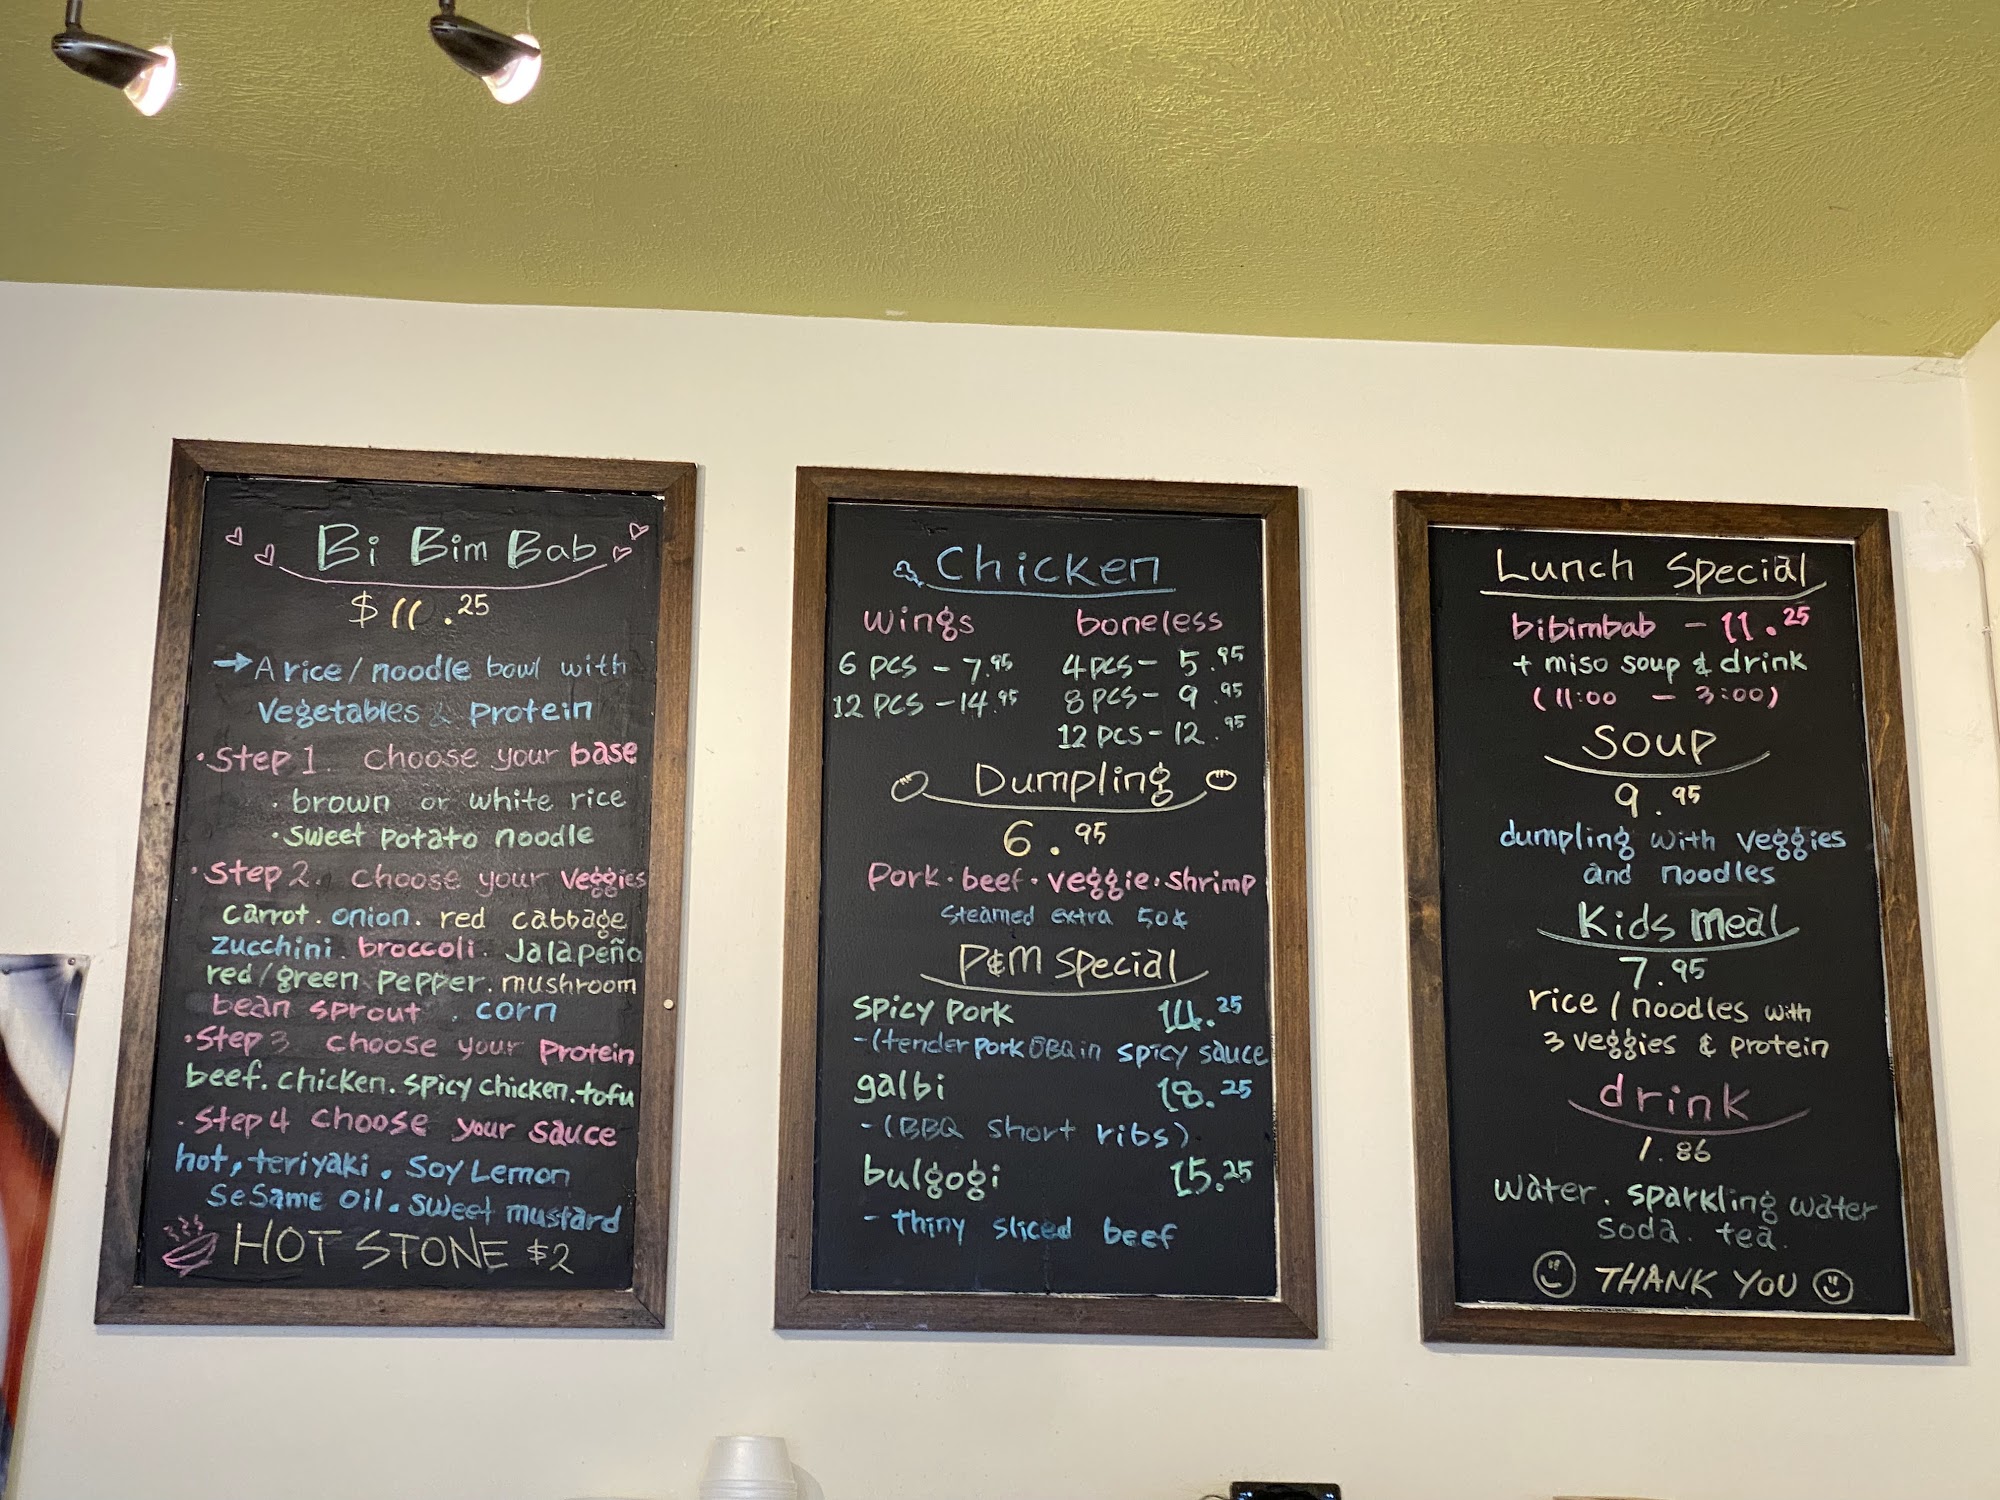 Bi Bim Bab
$11.25
→ A rice / noodle bowl with
vegetables & protein
· Step 1. choose your base
· brown or white rice
· sweet potato noodle
· Step 2. choose your veggies
carrot. onion. red cabbage
zucchini. broccoli. Jalapeño
red/green pepper. mushroom
bean sprout. corn
· Step 3 choose your protein
beef. chicken. spicy chicken. tofu
· Step 4 choose your sauce
hot, teriyaki. Soy Lemon
Sesame oil. sweet mustard
HOT STONE $2
Chicken
wings boneless
6 pcs - 7.95 4 pcs - 5.95
12 pcs - 14.95 8 pcs - 9.95
12 pcs - 12.95
Dumpling
6.95
Pork · beef · veggie · shrimp
Steamed extra 50¢
P&M special
spicy pork 14.25
- (tender pork BBQ in spicy sauce
galbi 18.25
- (BBQ short ribs)
bulgogi 15.25
- thiny sliced beef
Lunch Special
bibimbab - 11.25
+ miso soup & drink
(11:00 - 3:00)
Soup
9.95
dumpling with veggies
and noodles
Kids meal
7.95
rice / noodles with
3 veggies & protein
drink
1.86
water. sparkling water
soda. tea.
THANK YOU